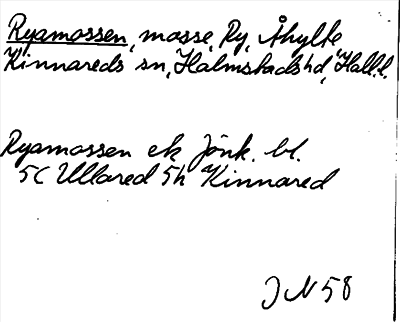 Ryamossen, mosse, Ry, Åhylte
Kinnareds sn, Halmstads hd, Hall. l.
Ryamossen ek Jönk. bl.
5C Ullared 5h Kinnared
J N 58